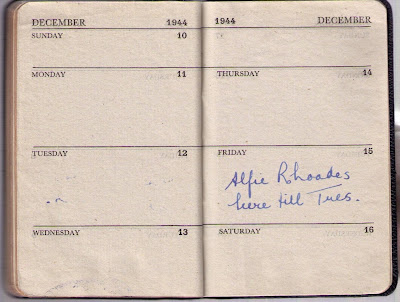 DECEMBER 1944
SUNDAY 10
MONDAY 11
TUESDAY 12
WEDNESDAY 13
1944 DECEMBER
THURSDAY 14
FRIDAY 15
Alfie Rhoades
here till Tues.
SATURDAY 16